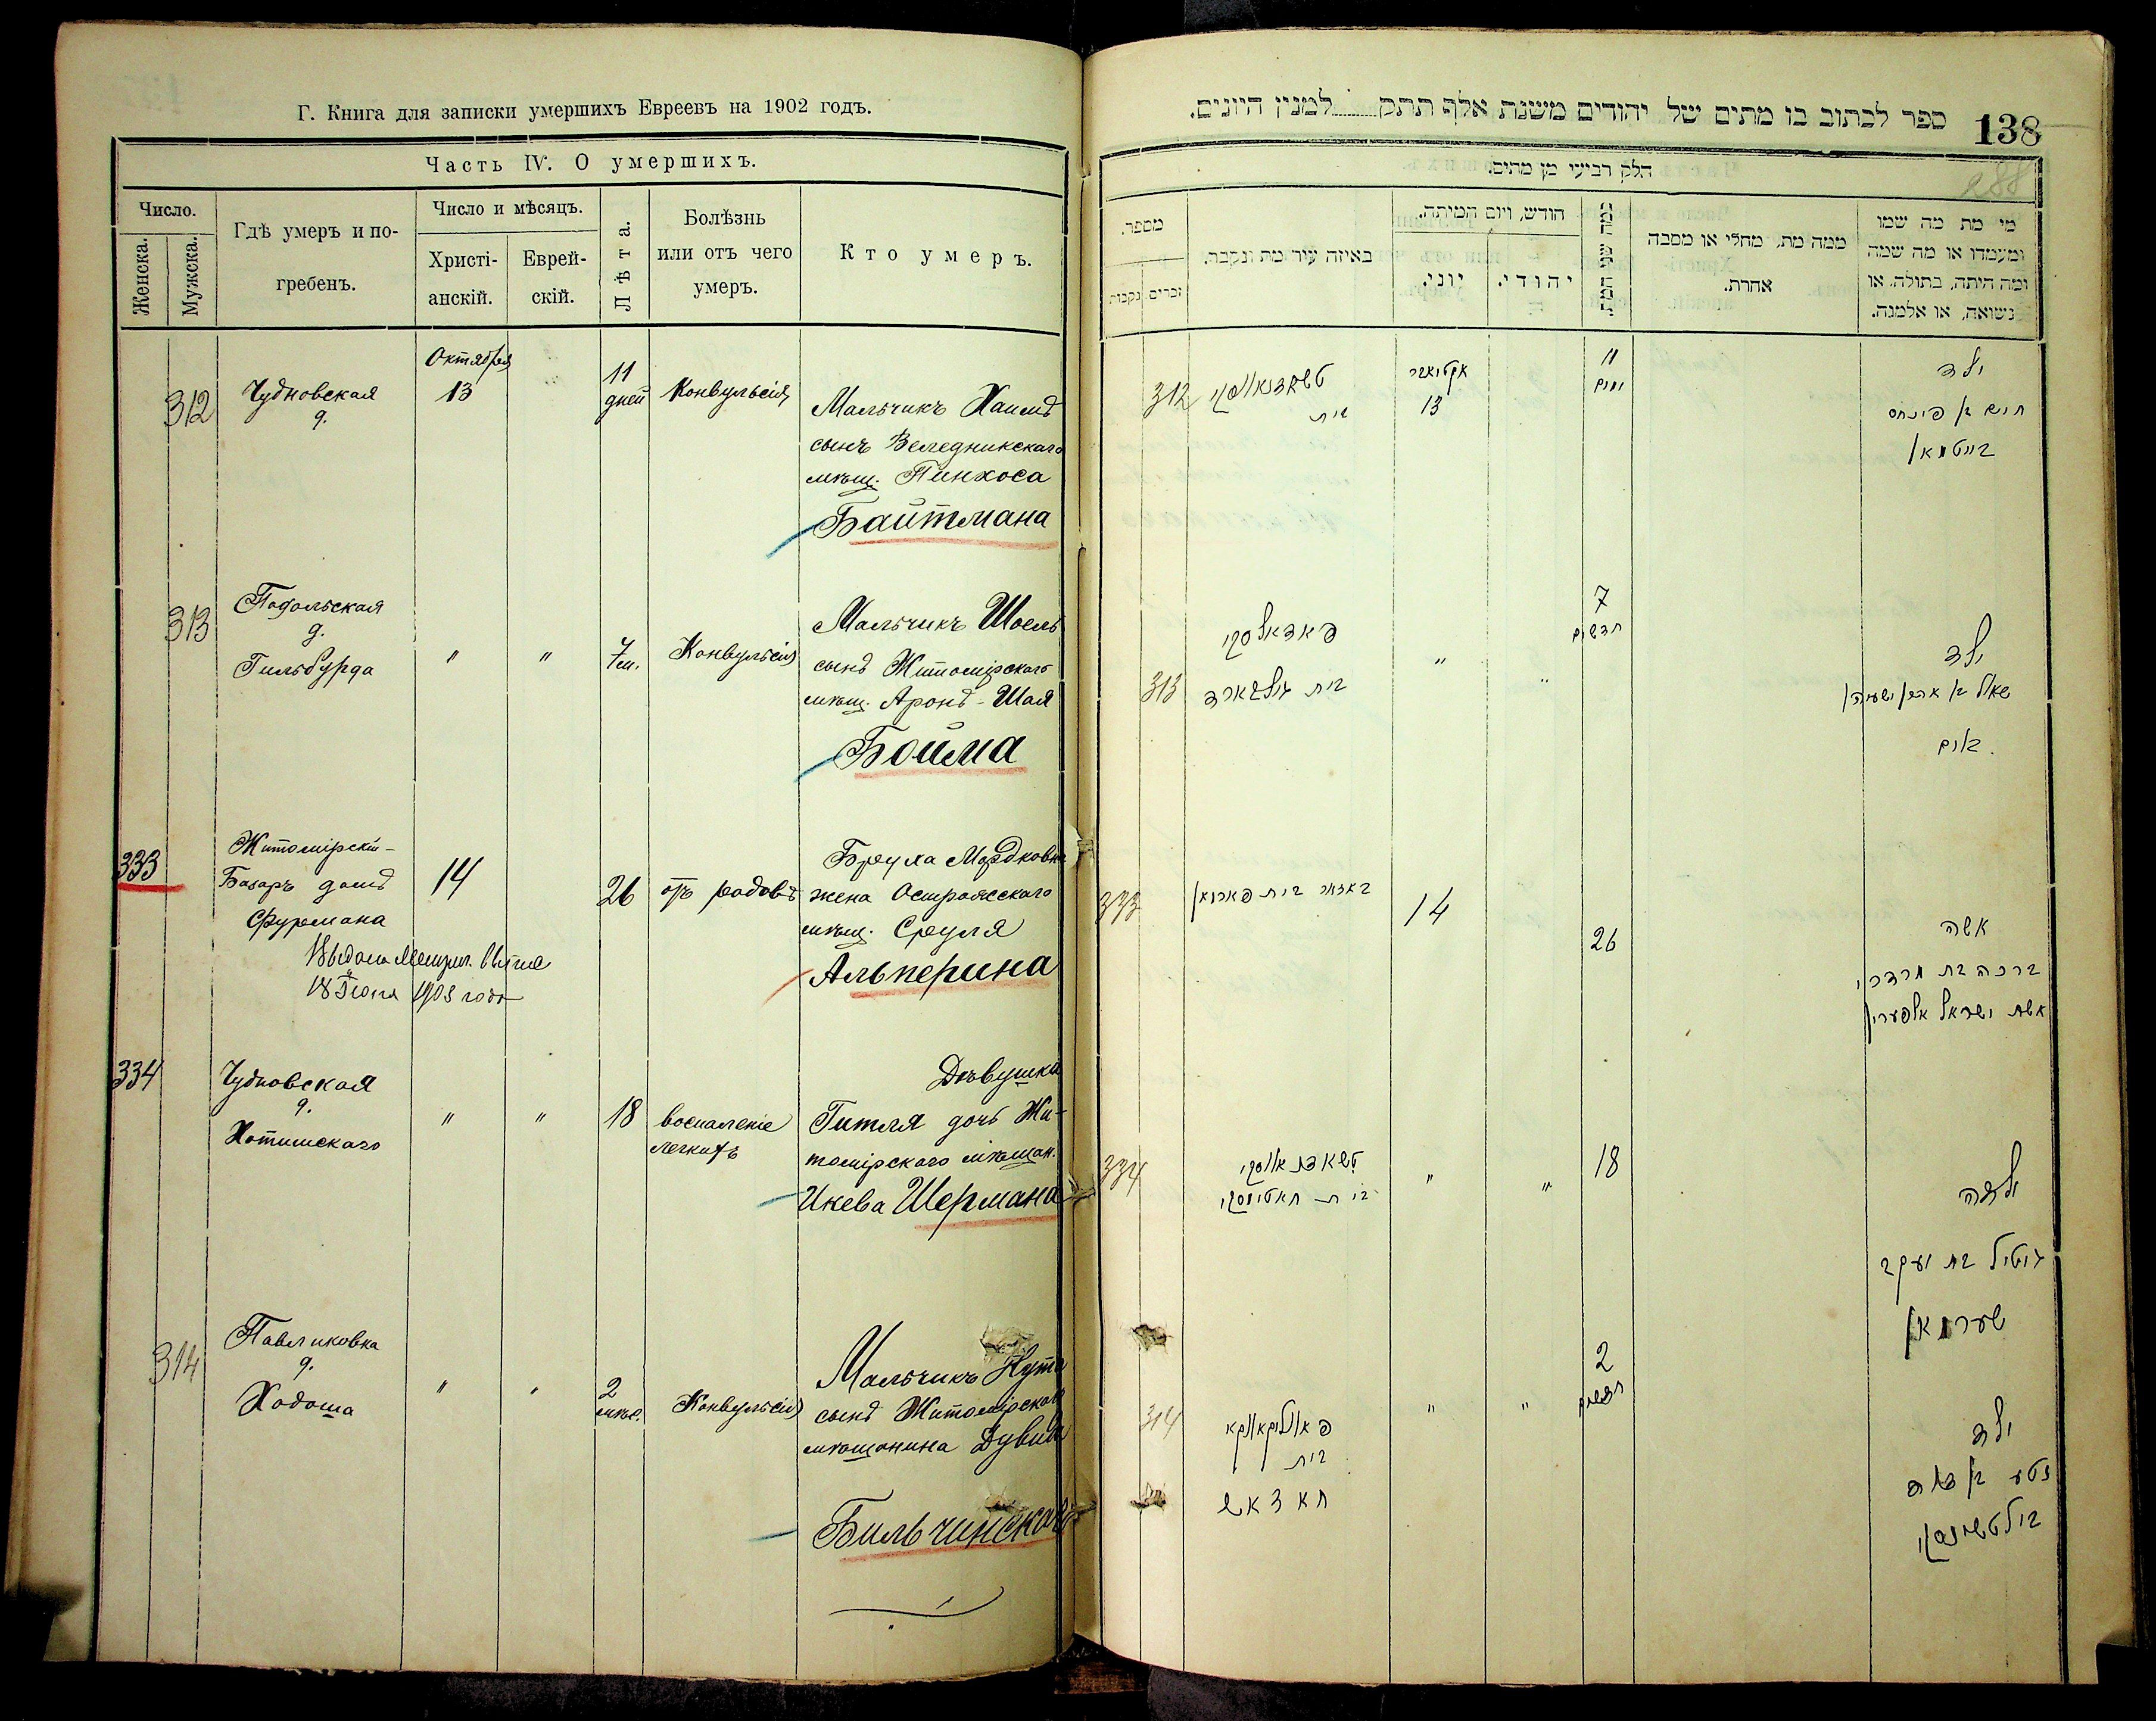 Г. Книга для записки умершихъ Евреевъ на 1902 годъ.
Часть IV. О умершихъ.
Число.
Женска.
Мужска.
Гдѣ умеръ и по-
гребенъ.
Число и мѣсяцъ.
Христі-
анскій.
Еврей-
скій.
Лѣта.
Болѣзнь
или отъ чего
умеръ.
Кто умеръ.
312
Чудновская
д.
Октября
13
11
дней
Конвульсія
Мальчикъ Хаимъ
сынъ Веледникскаго
мѣщ. Пинхоса
Байтмана
313
Подольская
д.
Гильбурда
"
"
7
м.
Конвульсія
Мальчикъ Шоель
сынъ Житомірскаго
мѣщ. Аронъ-Шая
Бойма
333
Житомірскій-
Базаръ домъ
Фурмана
14
26
отъ родовъ
Бреуха Мордковна
жена Остропольскаго
мѣщ. Сруля
Альперина
18 Іюня 1903 года
334
Чудновская
д.
Хотимскаго
"
"
18
воспаленіе
легкихъ
Дѣвушка
Гитля дочь Жи-
томірскаго мѣщан.
Икева Шермана
314
Павликовка
д.
Ходоша
"
"
2
мѣс.
Конвульсія
Мальчикъ Нута
сынъ Житомірскаго
мѣщанина Дувида
Бильчинскаго
ספר לכתוב בו מתים של יהודים משנת אלף תתק למנין היונים.
138
288
חלק רביעי מן מתים.
מספר.
זכרים
נקבות
באיזה עיר מת ונקבר.
חודש, ויום המיתה.
יוני.
יהודי.
כמה שני המת
ממה מת, מחלי או מסבה
אחרת.
מי מת מה שמו
ומעמדו או מה שמה
ומה היתה, בתולה, או
נשואה, או אלמנה.
312
טשאדנאווסקי
בית
אקטיאבר
13
11
ימים
ילד
חיים בן פינחס
בייטמאן
313
פאדאלסקי
בית גילבארד
"
"
7
חדשים
ילד
שאול בן אהרן ישעיה
בוים
333
באזאר בית פארמאן
14
26
אשה
ברכה בת מרדכי
אשת ישראל אלפערין
334
טשאדנאווסקי
בית חאטימסקי
"
"
18
ילדה
גיטיל בת יעקב
שערמאן
314
פאווליקאווקא
בית
חאדאש
"
"
2
חדשים
ילד
נטע בן דוד
בילטשינסקי